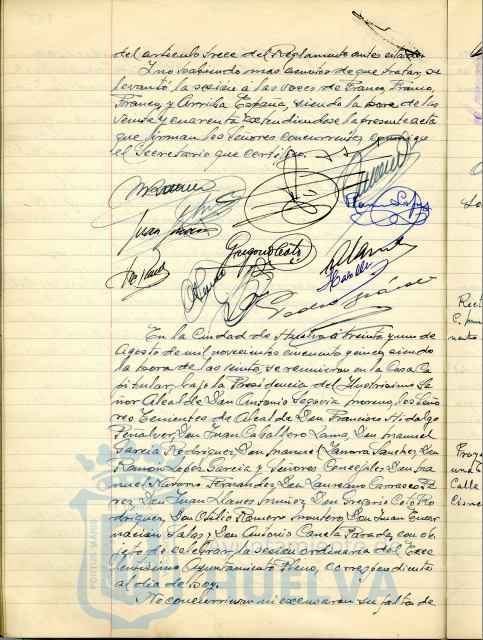 del articulo trece del Reglamento antes citado.
Y no habiendo mas asuntos de que tratar, se
levantó la sesion a las voces de Franco, Franco,
Franco, y Arriba España, siendo la hora de las
veinte y cuarenta extendiendose la presente acta
que firman los señores concurrentes conmigo
el Secretario que certifico.
Ramon Lopez
Juan
Gregorio Coto
Pedro
En la Ciudad de Huelva a treinta y uno de
Agosto de mil novecientos cincuenta y cinco, siendo
la hora de las veinte, se reunieron en la Casa Ca
pitular, bajo la Presidencia del Ilustrisimo Se
ñor Alcalde Don Antonio Segovia Moreno, los Seño
res Tenientes de Alcalde Don Francisco Hidalgo
Peñalver, Don Juan Caballero Lama, Don Manuel
Garcia Rodriguez, Don Manuel Zamora Sanchez, Don
Ramon Lopez Garcia y Señores Concejales Don Ma
nuel Navarro Fernandez, Don Laureano Carrasco Pe
rez, Don Juan Llanes Muñoz, Don Gregorio Coto Ro
driguez, Don Otilio Romero Montero, Don Juan Encar
nacion Salas y Don Antonio Canela Parada, con ob
jeto de celebrar la sesion ordinaria del Exce
lentisimo Ayuntamiento Pleno, correspondiente
al dia de hoy.
No concurrieron ni excusaron su falta de
PORTUS MARIS
HUELVA
Rect
Calle